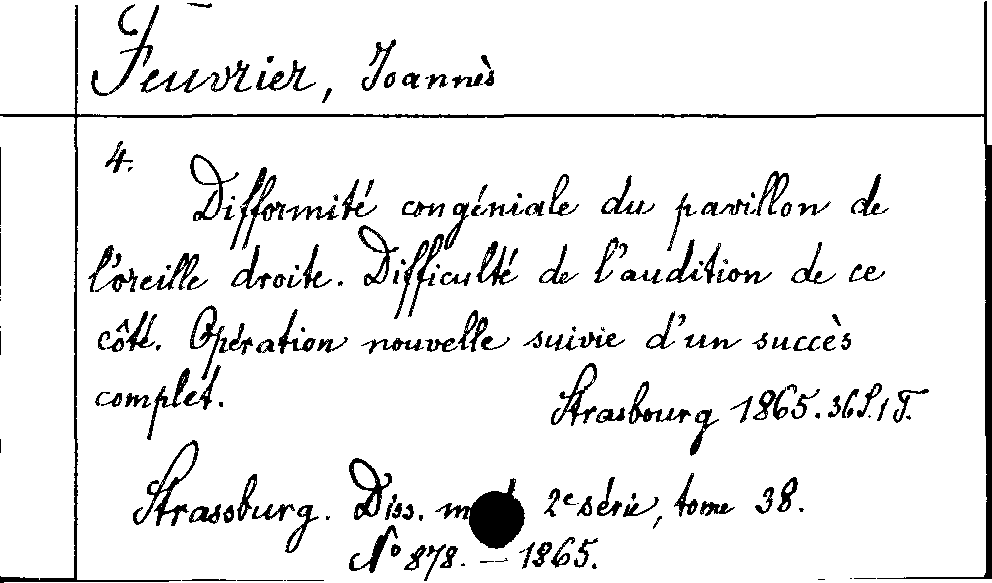 Feuvrier, Joannès
4.
Difformité congéniale du pavillon de
l'oreille droite. Difficulté de l'audition de ce
côté. Opération nouvelle suivie d'un succès
complet.
Strasbourg 1865. 36 S. 1 T.
Strassburg. Diss. 2e série, tome 38.
No 878. — 1865.